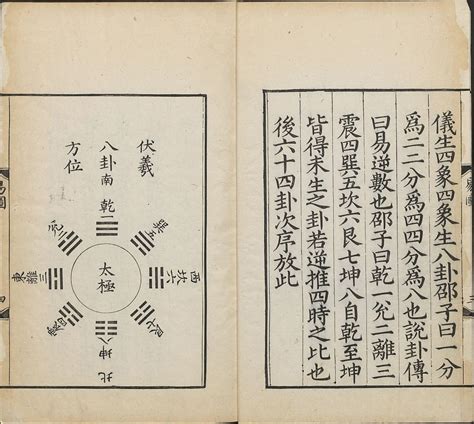 儀生四象四象生八卦邵子曰一分
爲二二分爲四四分爲八也說卦傳
曰易逆數也邵子曰乾一兌二離三
震四巽五坎六艮七坤八自乾至坤
皆得未生之卦若逆推四時之比也
後六十四卦次序放此
伏羲
八卦
方位
南
乾一
兌二
巽五
東
離三
太極
坎六
西
震四
艮七
坤八
北
易圖
四